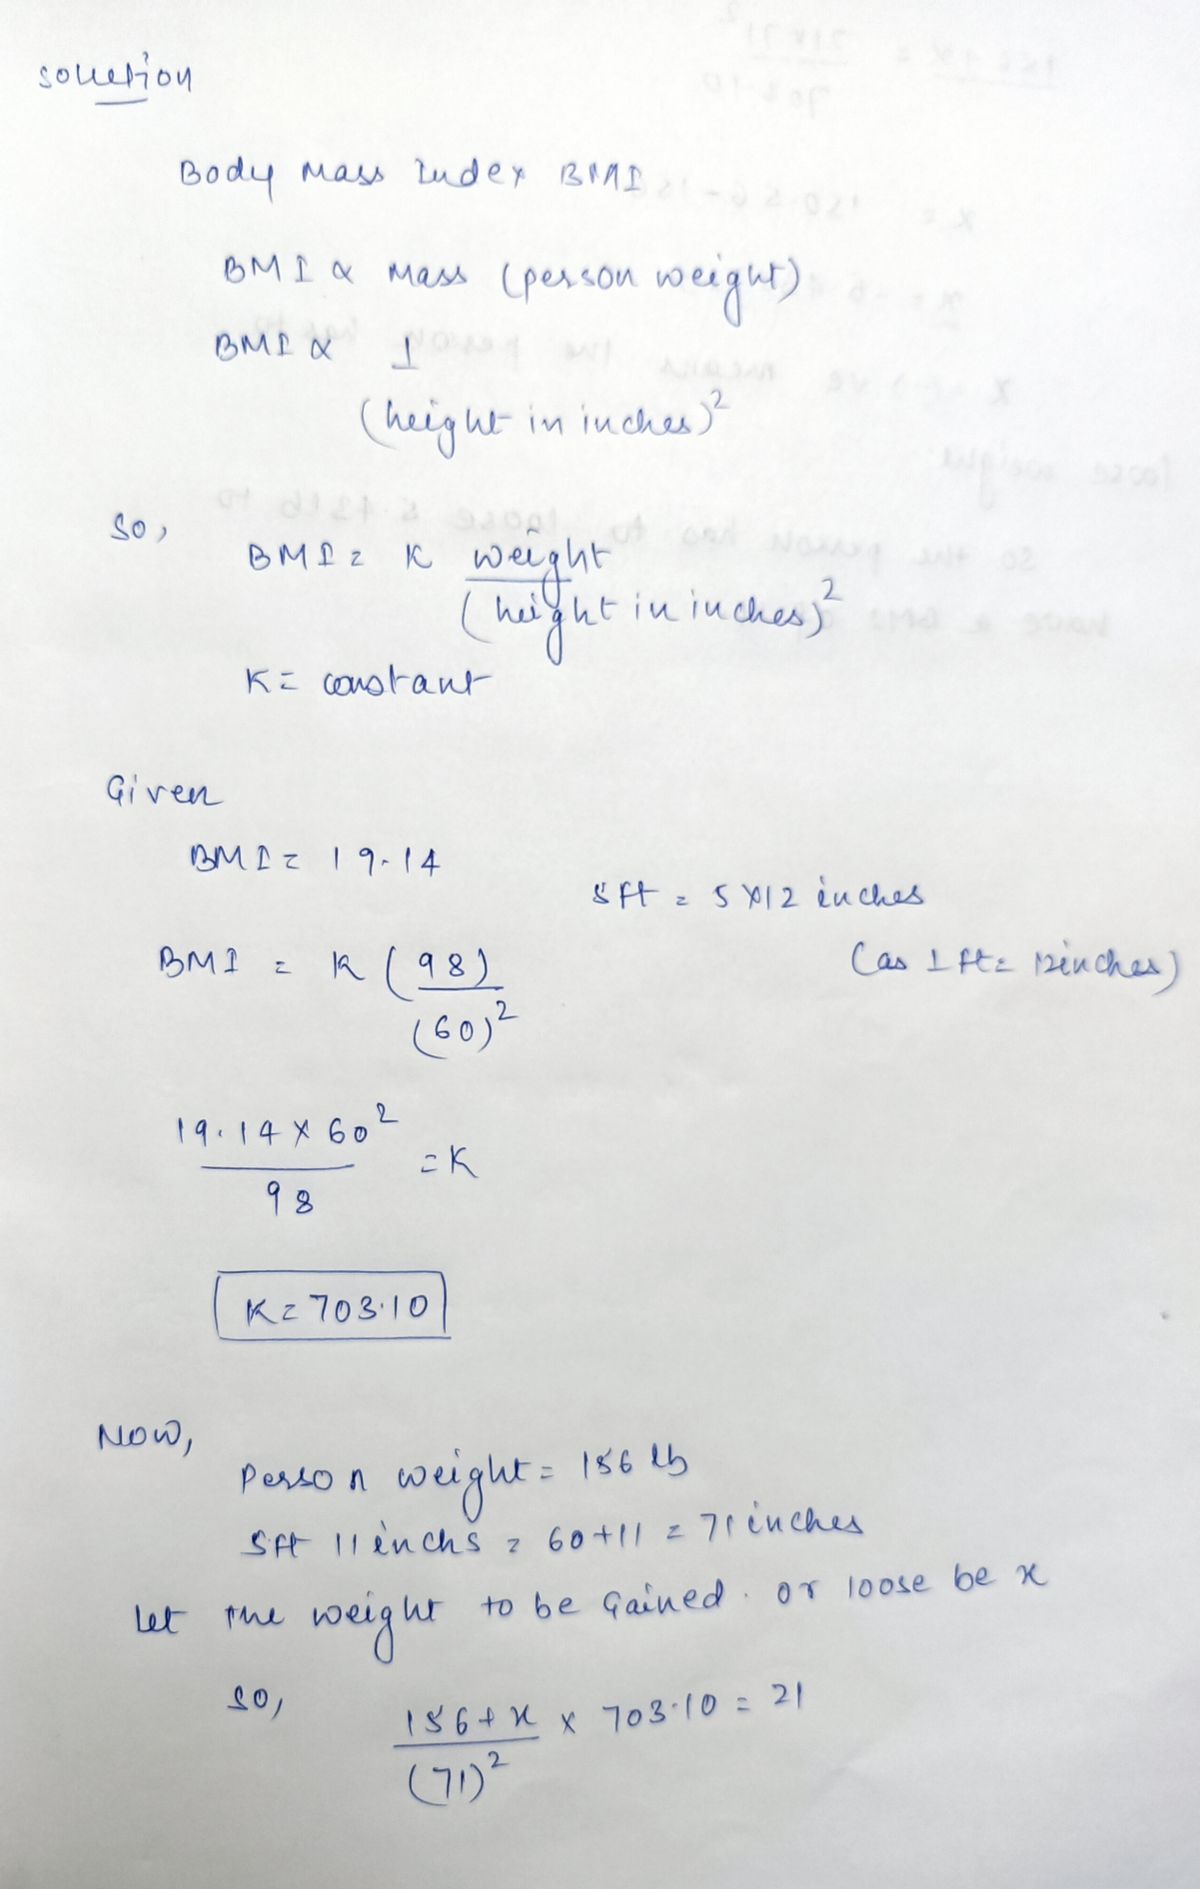 Solution
Body Mass Index BMI
BMI ∝ Mass (person weight)
BMI ∝ 1
(height in inches)²
So,
BMI = K weight
(height in inches)²
K = constant
Given
BMI = 19.14
5ft = 5×12 inches
BMI = K (98)
(as 1ft = 12inches)
(60)²
19.14 × 60²
= K
98
K = 703.10
Now,
Person weight = 156 lb
5ft 11 inchs = 60+11 = 71 inches
Let the weight to be Gained. or loose be x
So,
156 + x × 703.10 = 21
(71)²